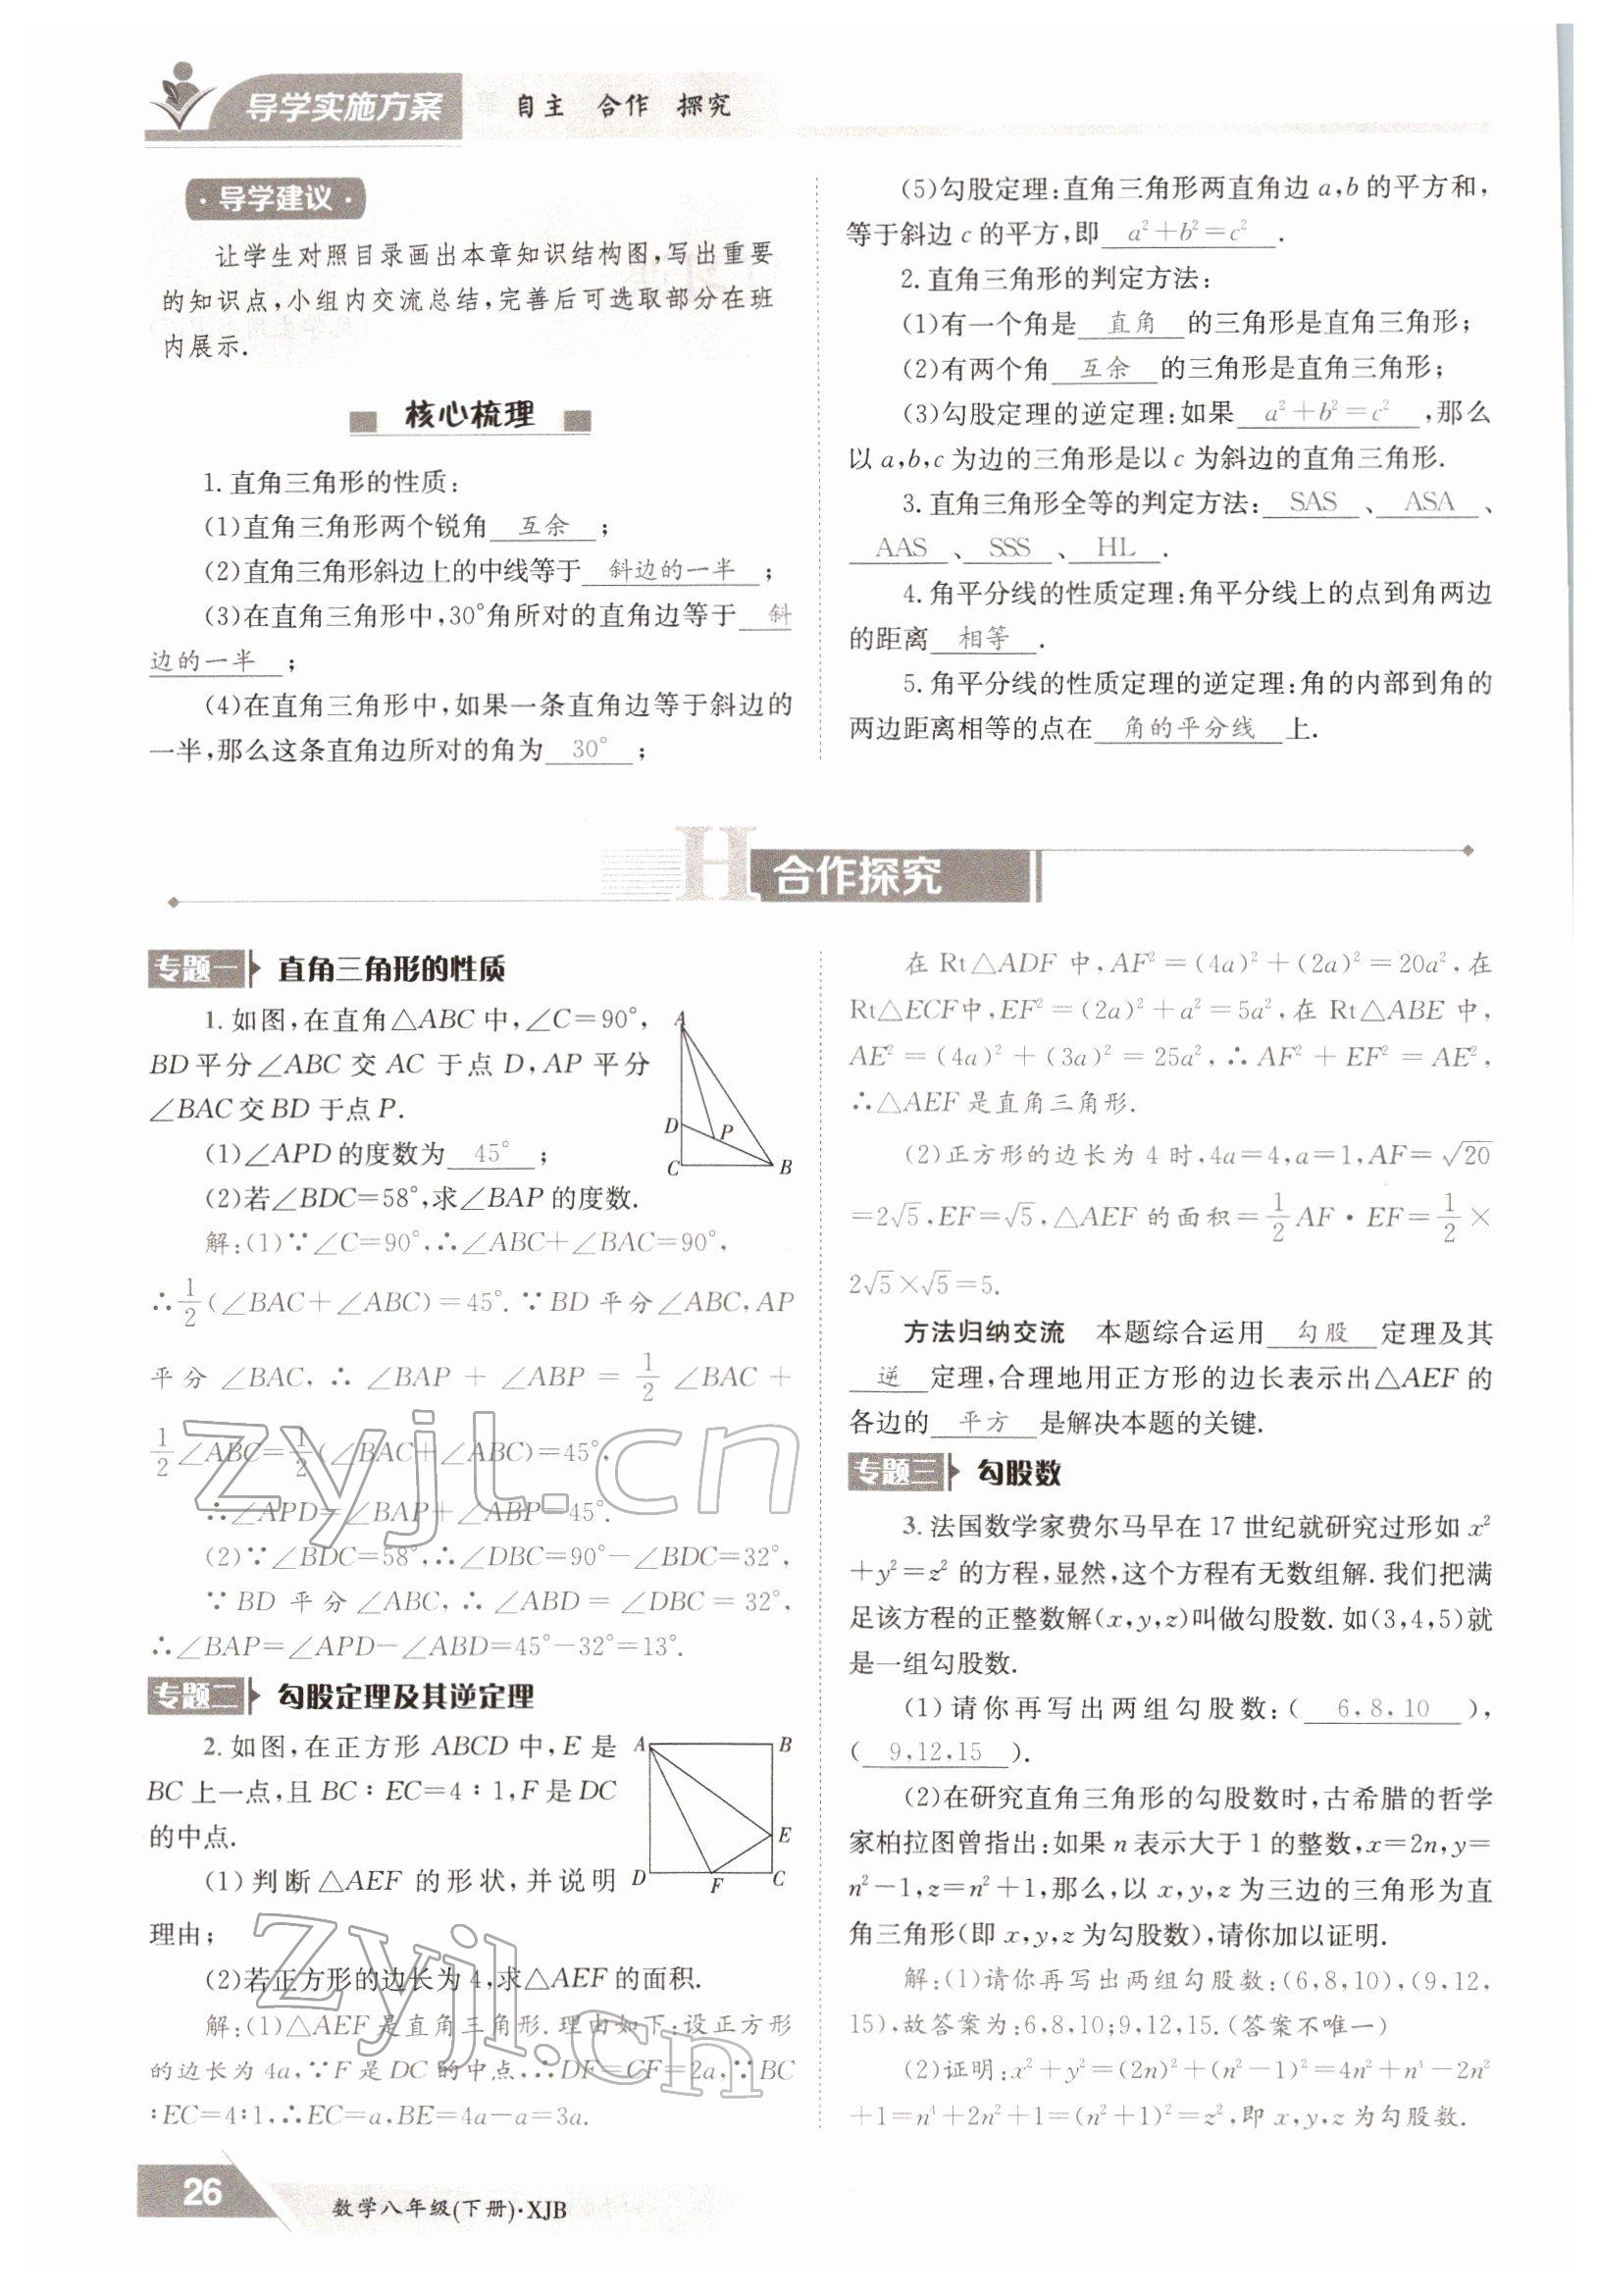 导学实施方案 自主 合作 探究
·导学建议·
让学生对照目录画出本章知识结构图,写出重要
的知识点,小组内交流总结,完善后可选取部分在班
内展示.
核心梳理
1.直角三角形的性质:
(1)直角三角形两个锐角 互余 ;
(2)直角三角形斜边上的中线等于 斜边的一半 ;
(3)在直角三角形中,30°角所对的直角边等于 斜
边的一半 ;
(4)在直角三角形中,如果一条直角边等于斜边的
一半,那么这条直角边所对的角为 30° ;
(5)勾股定理:直角三角形两直角边a,b的平方和,
等于斜边c的平方,即 a²+b²=c² .
2.直角三角形的判定方法:
(1)有一个角是 直角 的三角形是直角三角形;
(2)有两个角 互余 的三角形是直角三角形;
(3)勾股定理的逆定理:如果 a²+b²=c² ,那么
以a,b,c为边的三角形是以c为斜边的直角三角形.
3.直角三角形全等的判定方法: SAS 、 ASA 、
AAS 、 SSS 、 HL .
4.角平分线的性质定理:角平分线上的点到角两边
的距离 相等 .
5.角平分线的性质定理的逆定理:角的内部到角的
两边距离相等的点在 角的平分线 上.
H 合作探究
专题一 直角三角形的性质
1.如图,在直角△ABC中,∠C=90°,
BD平分∠ABC交AC于点D,AP平分
∠BAC交BD于点P.
(1)∠APD的度数为 45° ;
(2)若∠BDC=58°,求∠BAP的度数.
A
D
P
C
B
解:(1)∵∠C=90°,∴∠ABC+∠BAC=90°,
∴1/2(∠BAC+∠ABC)=45°.∵BD平分∠ABC,AP
平分∠BAC,∴∠BAP+∠ABP=1/2∠BAC+
1/2∠ABC=1/2(∠BAC+∠ABC)=45°,
∴∠APD=∠BAP+∠ABP=45°.
(2)∵∠BDC=58°,∴∠DBC=90°-∠BDC=32°,
∵BD平分∠ABC,∴∠ABD=∠DBC=32°,
∴∠BAP=∠APD-∠ABD=45°-32°=13°.
专题二 勾股定理及其逆定理
2.如图,在正方形ABCD中,E是
BC上一点,且BC∶EC=4∶1,F是DC
的中点.
(1)判断△AEF的形状,并说明
理由;
(2)若正方形的边长为4,求△AEF的面积.
A
B
E
D
F
C
解:(1)△AEF是直角三角形.理由如下:设正方形
的边长为4a,∵F是DC的中点,∴DF=CF=2a,∵BC
∶EC=4∶1,∴EC=a,BE=4a-a=3a.
在Rt△ADF中,AF²=(4a)²+(2a)²=20a²,在
Rt△ECF中,EF²=(2a)²+a²=5a²,在Rt△ABE中,
AE²=(4a)²+(3a)²=25a²,∴AF²+EF²=AE²,
∴△AEF是直角三角形.
(2)正方形的边长为4时,4a=4,a=1,AF=√20
=2√5,EF=√5,△AEF的面积=1/2AF·EF=1/2×
2√5×√5=5.
方法归纳交流 本题综合运用 勾股 定理及其
逆 定理,合理地用正方形的边长表示出△AEF的
各边的 平方 是解决本题的关键.
专题三 勾股数
3.法国数学家费尔马早在17世纪就研究过形如x²
+y²=z²的方程,显然,这个方程有无数组解.我们把满
足该方程的正整数解(x,y,z)叫做勾股数.如(3,4,5)就
是一组勾股数.
(1)请你再写出两组勾股数:( 6,8,10 ),
( 9,12,15 ).
(2)在研究直角三角形的勾股数时,古希腊的哲学
家柏拉图曾指出:如果n表示大于1的整数,x=2n,y=
n²-1,z=n²+1,那么,以x,y,z为三边的三角形为直
角三角形(即x,y,z为勾股数),请你加以证明.
解:(1)请你再写出两组勾股数:(6,8,10),(9,12,
15),故答案为:6,8,10;9,12,15.(答案不唯一)
(2)证明:x²+y²=(2n)²+(n²-1)²=4n²+n⁴-2n²
+1=n⁴+2n²+1=(n²+1)²=z²,即x,y,z为勾股数.
zyjl.cn
zyjl.cn
26 数学八年级(下册)·XJB